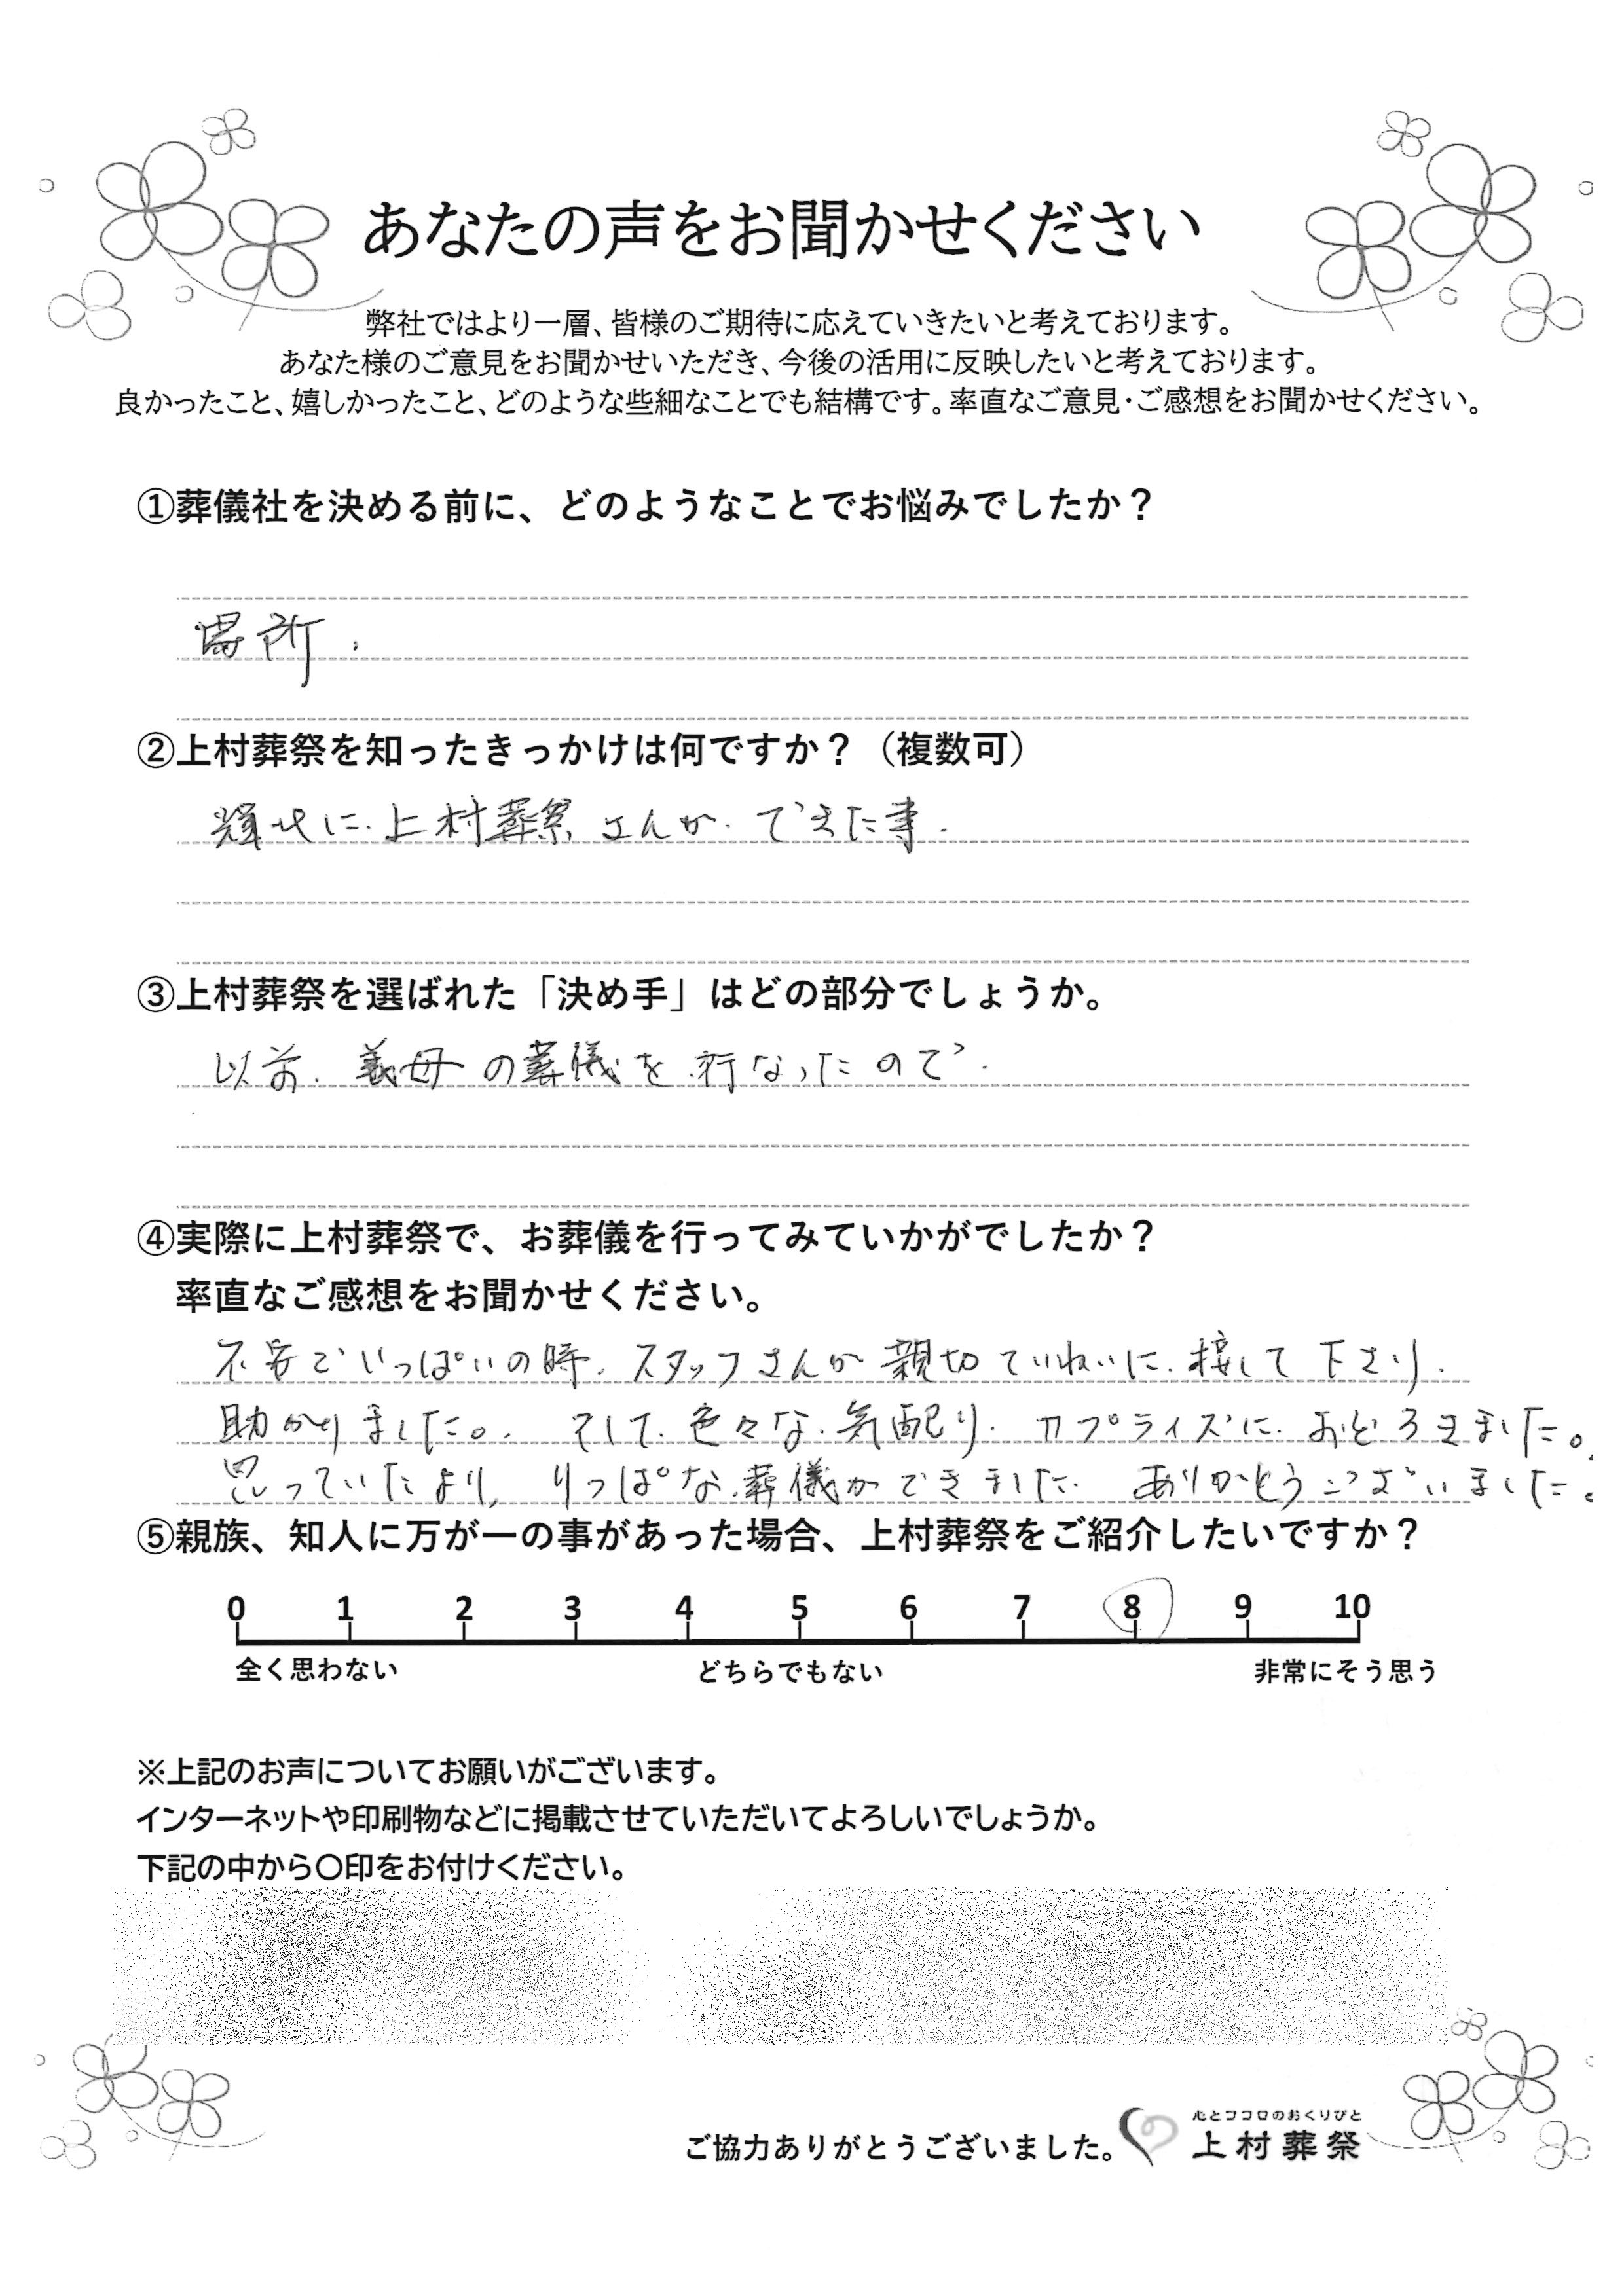 あなたの声をお聞かせください
弊社ではより一層、皆様のご期待に応えていきたいと考えております。
あなた様のご意見をお聞かせいただき、今後の活用に反映したいと考えております。
良かったこと、嬉しかったこと、どのような些細なことでも結構です。率直なご意見・ご感想をお聞かせください。
①葬儀社を決める前に、どのようなことでお悩みでしたか？
場所.
②上村葬祭を知ったきっかけは何ですか？（複数可）
に.上村葬祭さんが.できた事.
③上村葬祭を選ばれた「決め手」はどの部分でしょうか。
以前.義母の葬儀を行なったので.
④実際に上村葬祭で、お葬儀を行ってみていかがでしたか？
率直なご感想をお聞かせください。
不安でいっぱいの時.スタッフさんが親切ていねいに.接して下さり.
助かりました。.そして.色々な.気配り.サプライズに.おどろきました。
思っていたより,りっぱな.葬儀ができました.ありがとうございました。
⑤親族、知人に万が一の事があった場合、上村葬祭をご紹介したいですか？
0 1 2 3 4 5 6 7 8 9 10
全く思わない どちらでもない 非常にそう思う
※上記のお声についてお願いがございます。
インターネットや印刷物などに掲載させていただいてよろしいでしょうか。
下記の中から〇印をお付けください。
心とココロのおくりびと
ご協力ありがとうございました。上村葬祭